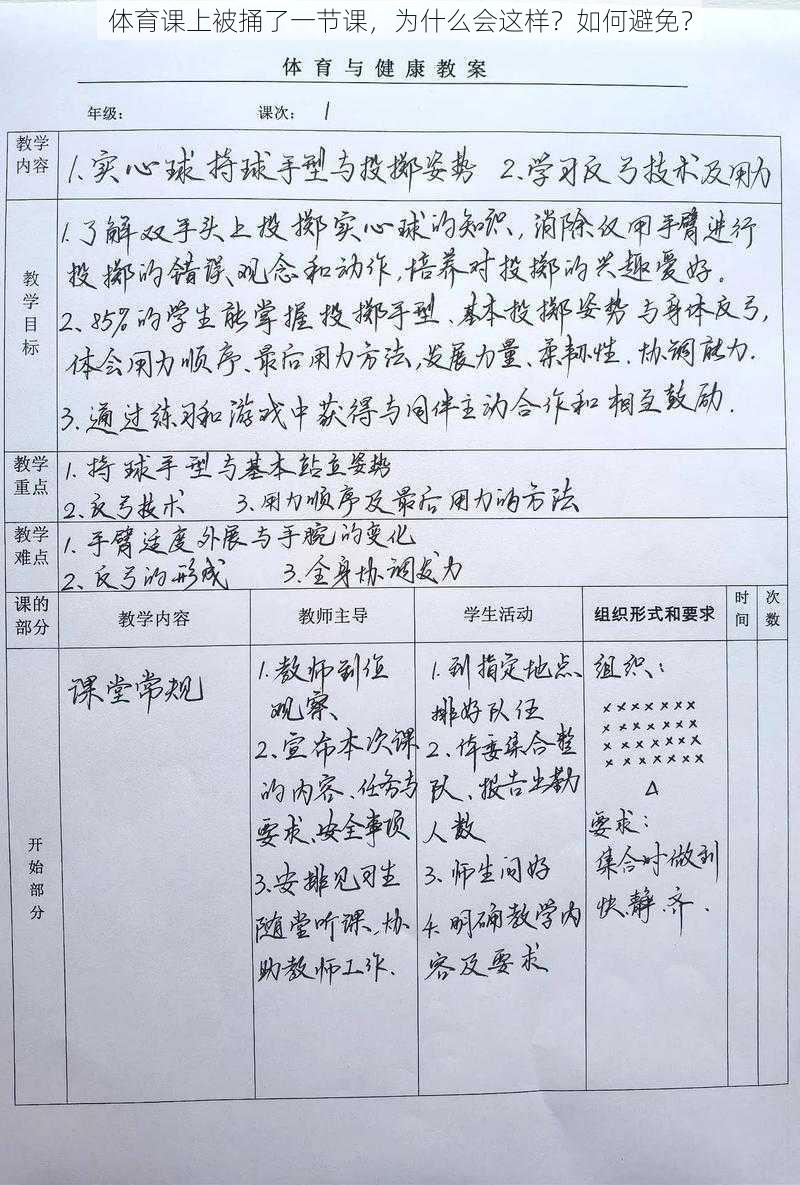 体育课上被捅了一节课，为什么会这样？如何避免？
体育与健康教案
年级： 课次：1
教学内容
1.实心球持球手型与投掷姿势 2.学习反弓技术及用力
教学目标
1.了解双手头上投掷实心球的知识，消除仅用手臂进行
投掷的错误观念和动作，培养对投掷的兴趣爱好。
2、85%的学生能掌握投掷手型、基本投掷姿势与身体反弓，
体会用力顺序、最后用力方法，发展力量、柔韧性、协调能力.
3.通过练习和游戏中获得与同伴主动合作和相互鼓励.
教学重点
1.持球手型与基本站立姿势
2.反弓技术 3.用力顺序及最后用力的方法
教学难点
1.手臂适度外展与手腕的变化
2、反弓的形成 3.全身协调发力
课的部分 教学内容 教师主导 学生活动 组织形式和要求 时间 次数
开始部分
课堂常规
1.教师到位
观察
2.宣布本次课
的内容、任务与
要求、安全事项
3.安排见习生
随堂听课，协
助教师工作.
1.到指定地点
排好队伍
2.体委集合整
队、报告出勤
人数
3.师生问好
4.明确教学内
容及要求
组织：
×××××××
×××××××
×××××××
×××××××
△
要求：
集合时做到
快、静、齐.